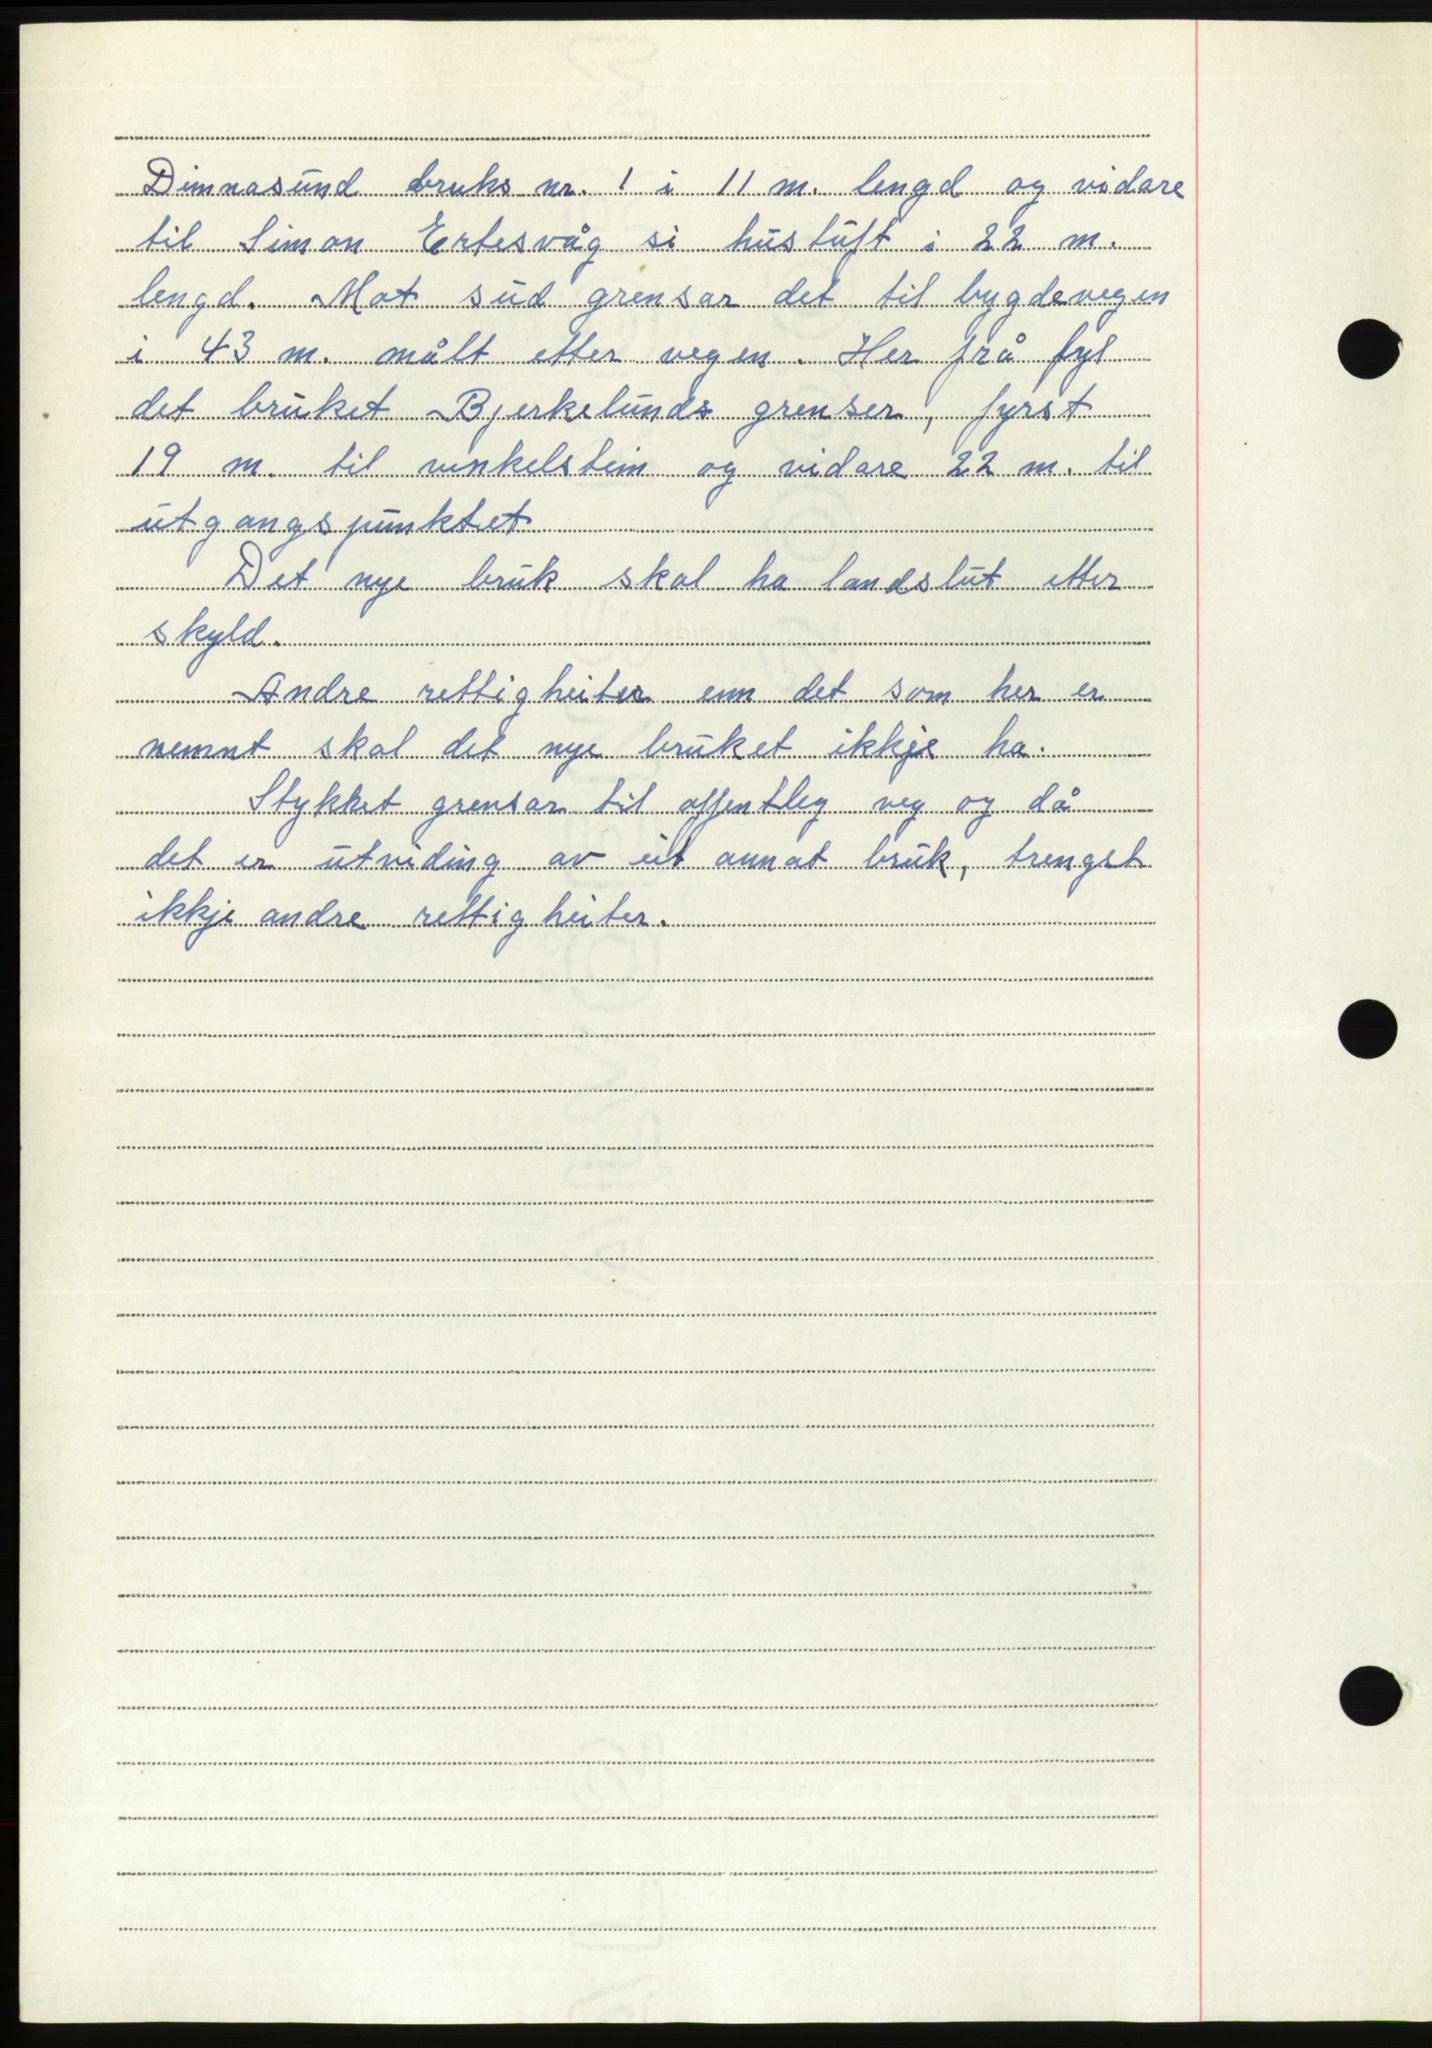 Dimnasund bruks nr. 1 i 11 m. lengd og vidare
til Simon Ertesvåg si hustuft i 22 m.
lengd. Mot sud grensar det til bygdevegen
i 43 m. målt etter vegen. Her frå fyl
det bruket Bjerkelunds grenser, fyrst
19 m. til vinkelstein og vidare 22 m. til
utgangspunktet
Det nye bruk skal ha landslut etter
skyld.
Andre rettigheiter enn det som her er
nemnt skal det nye bruket ikkje ha.
Stykket grensar til offentleg veg og då
det er utviding av eit annat bruk, trengst
ikkje andre rettigheiter.